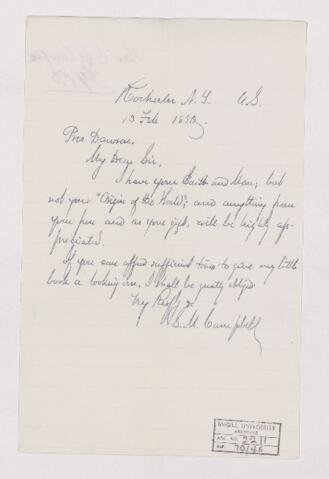 Rochester N. Y. U.S.
13 Feb 1890
Pres Dawson,
My Dear Sir,
I have your Earth and Man; but
not your "Origin of the World"; and anything from
your pen and as your gift, will be highly ap-
preciated.
If you can afford sufficient time to give my little
book a looking over, I shall be greatly obliged
Very Respfy &c
S. M. Campbell
McGILL UNIVERSITY
ARCHIVES
ACC. NO. 2211
REF. 70/46